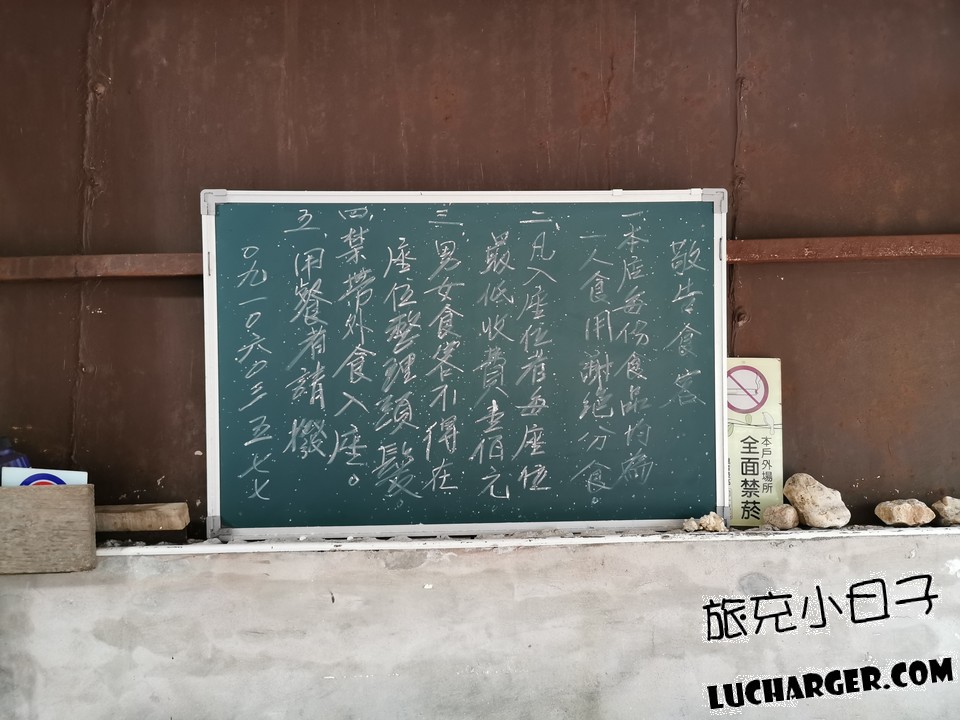 敬告食客
一、本店每份食品均為
一人食用謝絕分食。
二、凡入座位者每座位
最低收費壹佰元
三、男女食客不得在
座位整理頭髮
四、禁帶外食入座。
五、用餐者請機
0九一0六0三五七七
本戶外場所
全面禁菸
旅充小日子
LUCHARGER.COM